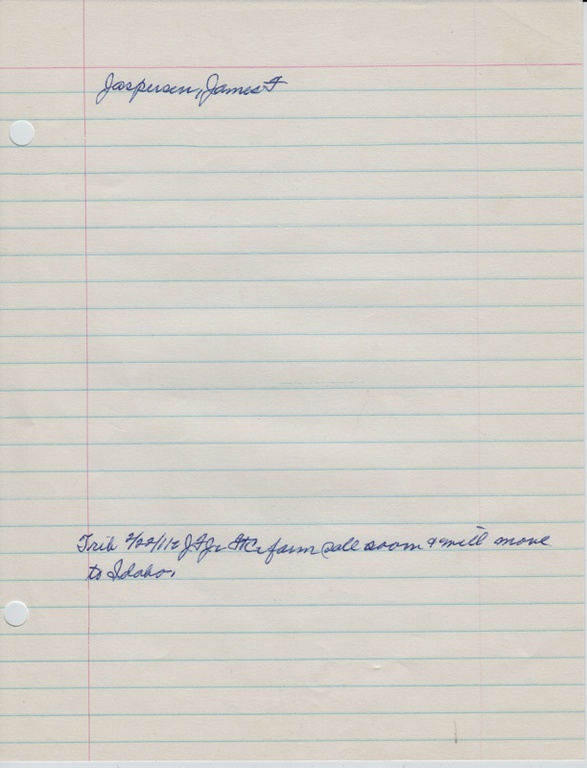 Jaspersen, James F
Trib 2/22/112 JFJ farm sale soon & will move
to Idaho.